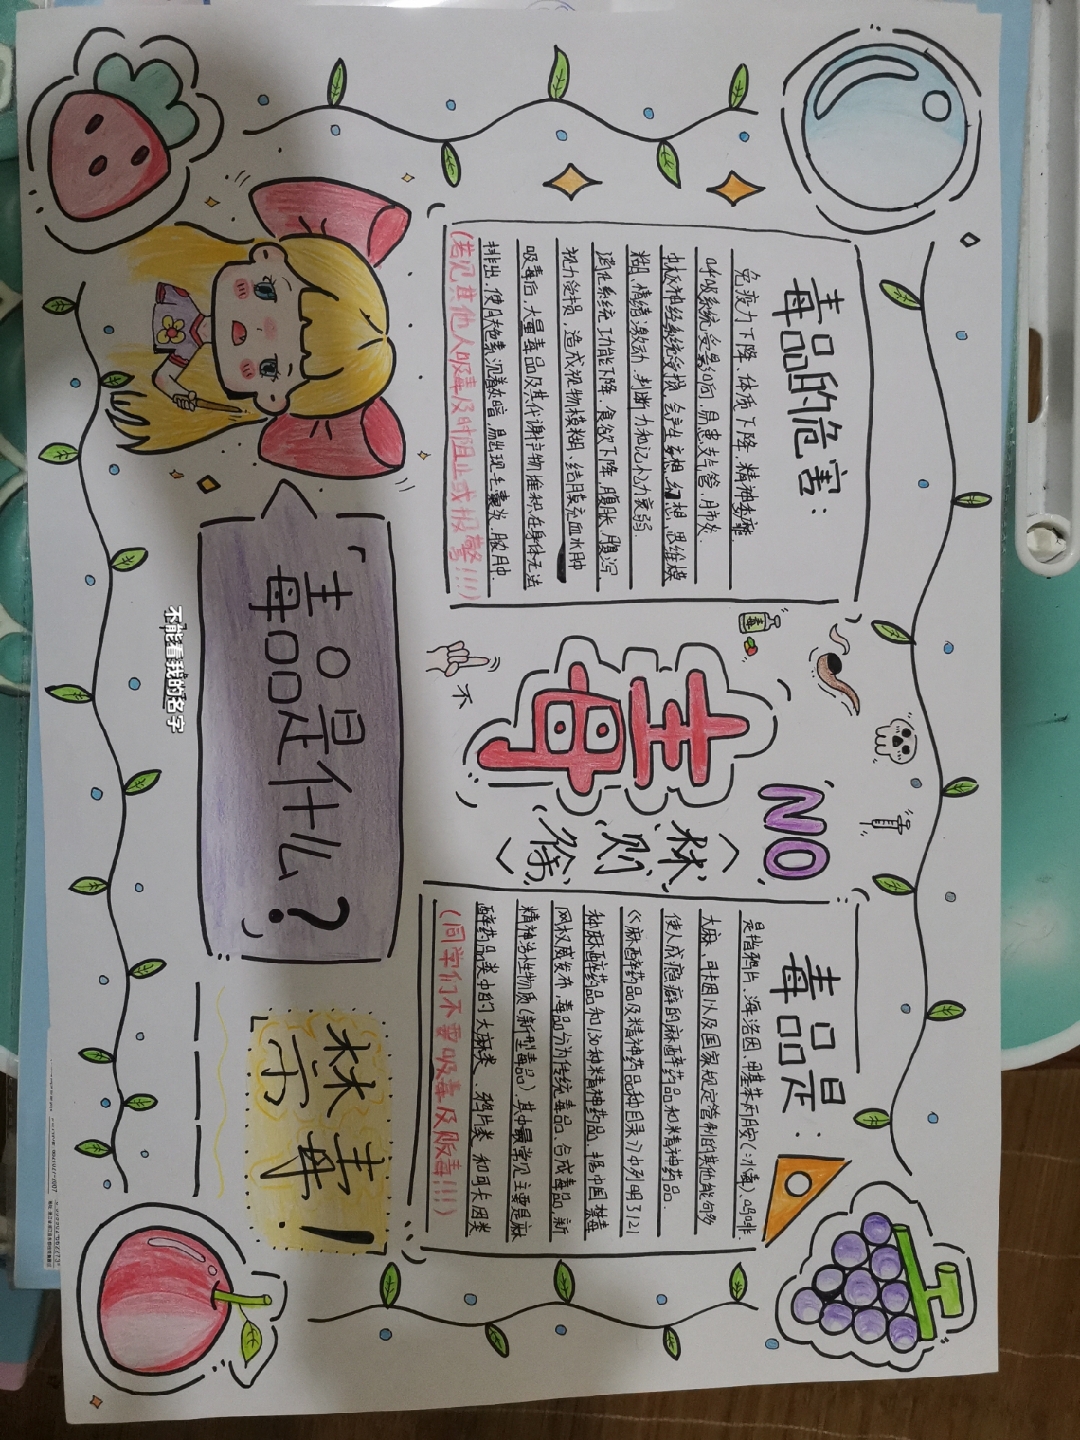 毒品的危害:
免疫力下降、体质下降、精神萎靡
呼吸系统受影响,易患支气管、肺炎.
中枢神经系统受损,会产生妄想、幻想、思维模
糊、情绪激动、判断力和记忆力衰弱.
消化系统功能下降、食欲下降、腹胀、腹泻.
视力受损,造成视物模糊、结膜充血水肿
吸毒后,大量毒品及其代谢产物堆积在身体无法
排出,使肤色素沉着灰暗,易出现毛囊炎、脓肿.
(若见其他人吸毒及时阻止或报警!!!)
毒
NO
毒
〈林则徐〉
不
毒品是:
是指鸦片、海洛因、甲基苯丙胺(冰毒)、吗啡、
大麻、可卡因以及国家规定管制的其他能够
使人成瘾癖的麻醉药品和精神药品.
《麻醉药品及精神药品品种目录》中列明了121
种麻醉药品和130种精神药品,据中国禁毒
网权威发布,毒品分为传统毒品、合成毒品、新
精神活性物质(新型毒品).其中最常见主要是麻
醉药品类中的大麻类、鸦片类和可卡因类
(同学们不要吸毒及贩毒!!!)
「毒品是什么?」
禁毒!
不能看我的名字